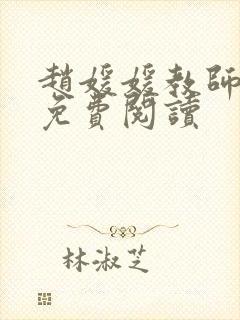 趙媛媛教師
免費閱讀
林淑芝